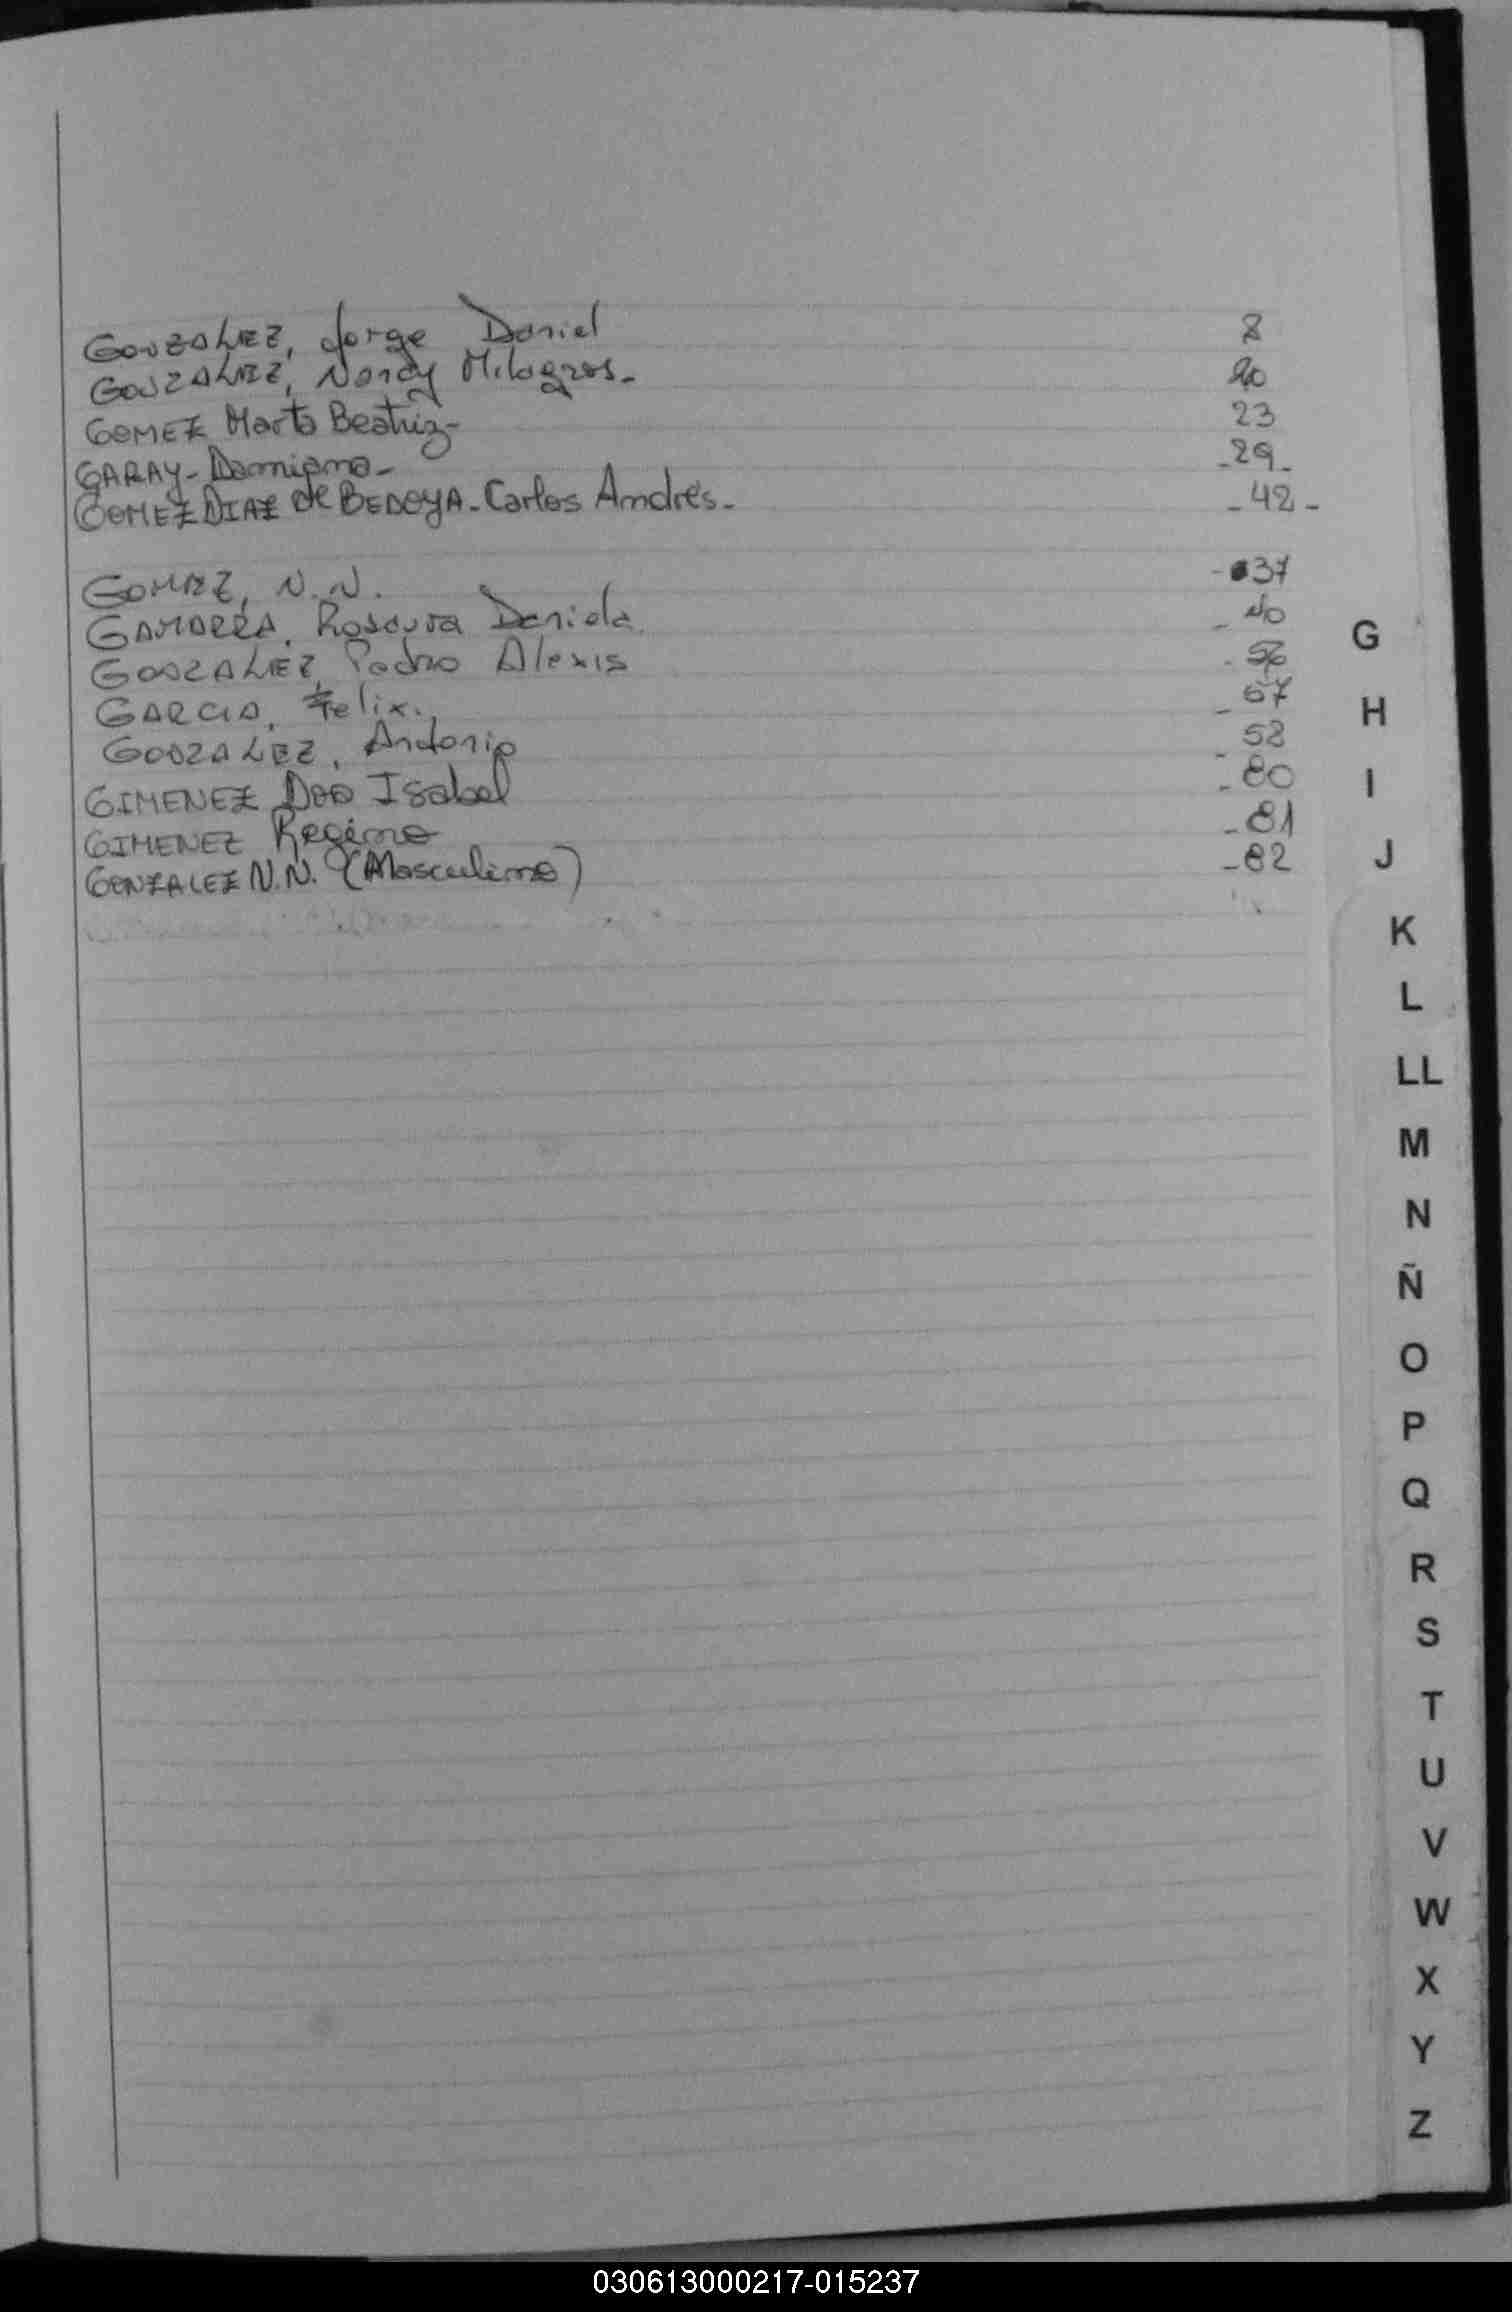 GONZALEZ, Jorge Daniel 8
GONZALEZ, Nancy Milagros- 20
GOMEZ Marta Beatriz- 23
GARAY- Damiana- -29-
GOMEZ DIAZ de BEDOYA- Carlos Andrés- -42-
GOMEZ, N.N. -37
GAMARRA, Rosaura Daniela. -40
GONZALEZ, Pedro Alexis -56
GARCIA, Felix. -57
GONZALEZ, Antonio -58
GIMENEZ Isabel -80
GIMENEZ Regina -81
GONZALEZ N.N. (Masculino) -82
G
H
I
J
K
L
LL
M
N
Ñ
O
P
Q
R
S
T
U
V
W
X
Y
Z
030613000217-015237